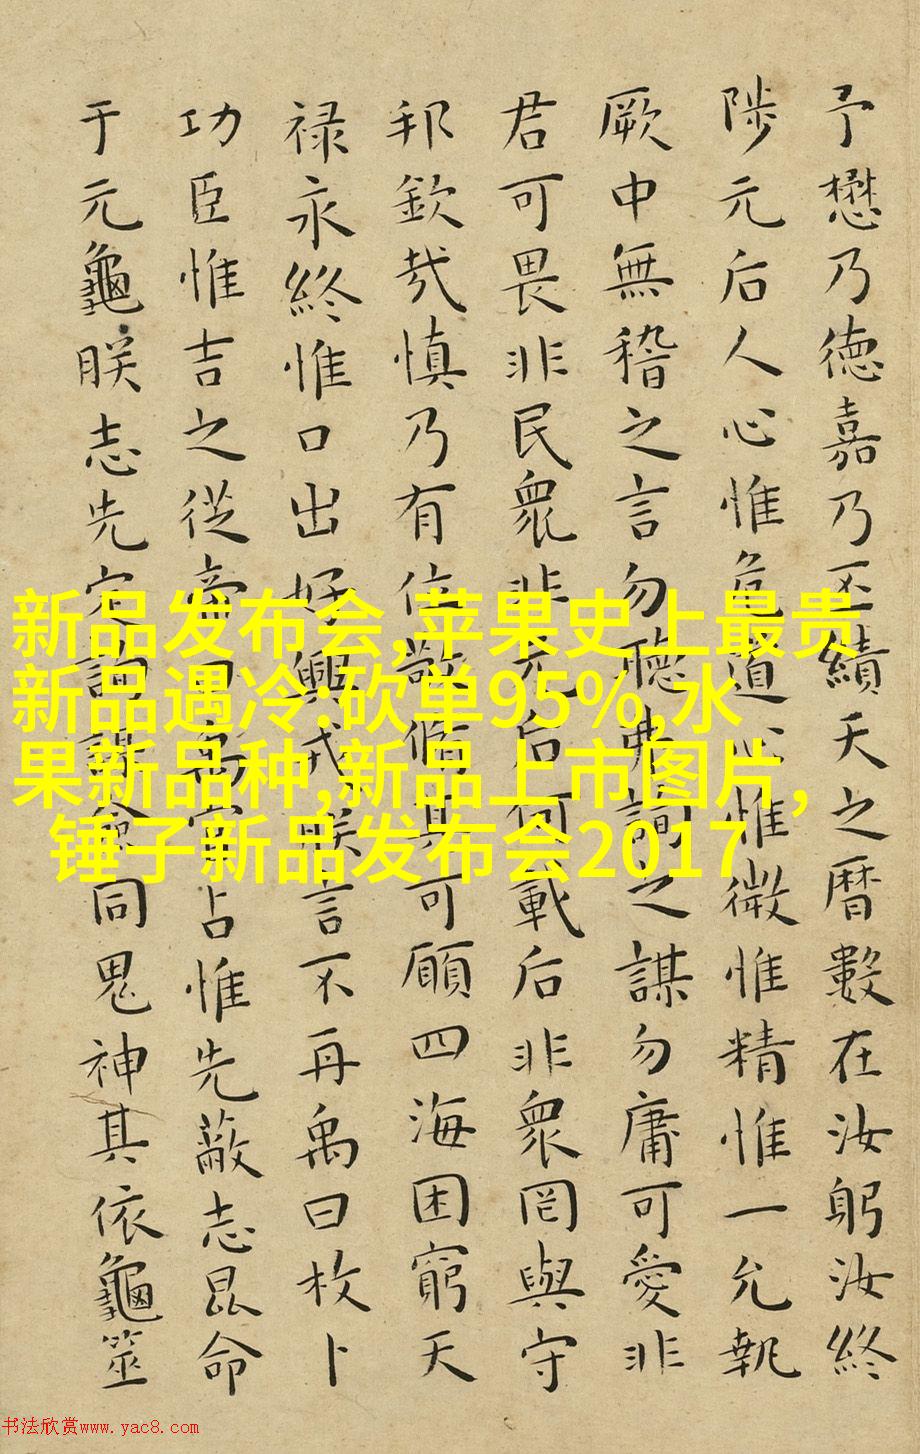 予懋乃德嘉乃丕績天之暦數在汝躬汝終
陟元后人心惟危道心惟微惟精惟一允執
厥中無稽之言勿聽弗詢之謀勿庸可愛非
君可畏非民衆非元后何戴后非衆罔與守
邦欽哉慎乃有位敬脩其可願四海困窮天
禄永終惟口出好興戎朕言不再禹曰枚卜
功臣惟吉之從帝曰禹官占惟先蔽志昆命
于元龜朕志先定詢謀僉同鬼神其依龜筮
新品发布会,苹果史上最贵
新品遇冷:砍单95%,水
果新品种,新品上市图片,
锤子新品发布会2017
书法欣赏www.yac8.com